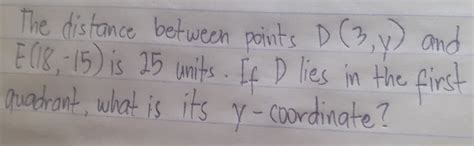 The distance between points D(3,y) and
E(18,-15) is 25 units. If D lies in the first
quadrant, what is its y-coordinate?